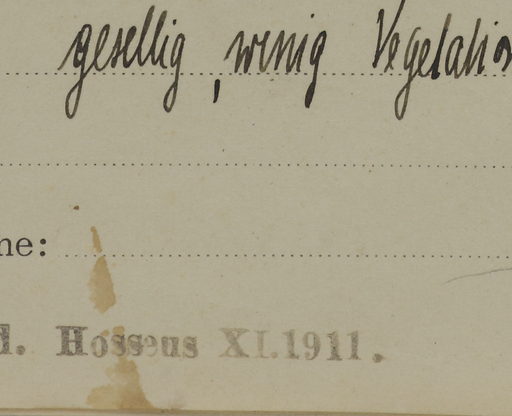 gesellig, wenig Vegetatio
ne:
d. Hosseus XI.1911.